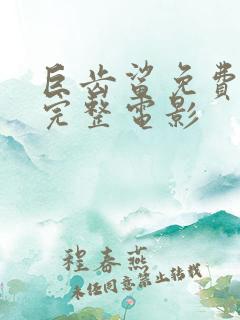 巨齿鲨免費
完整電影
程春燕
未经同意禁止转载